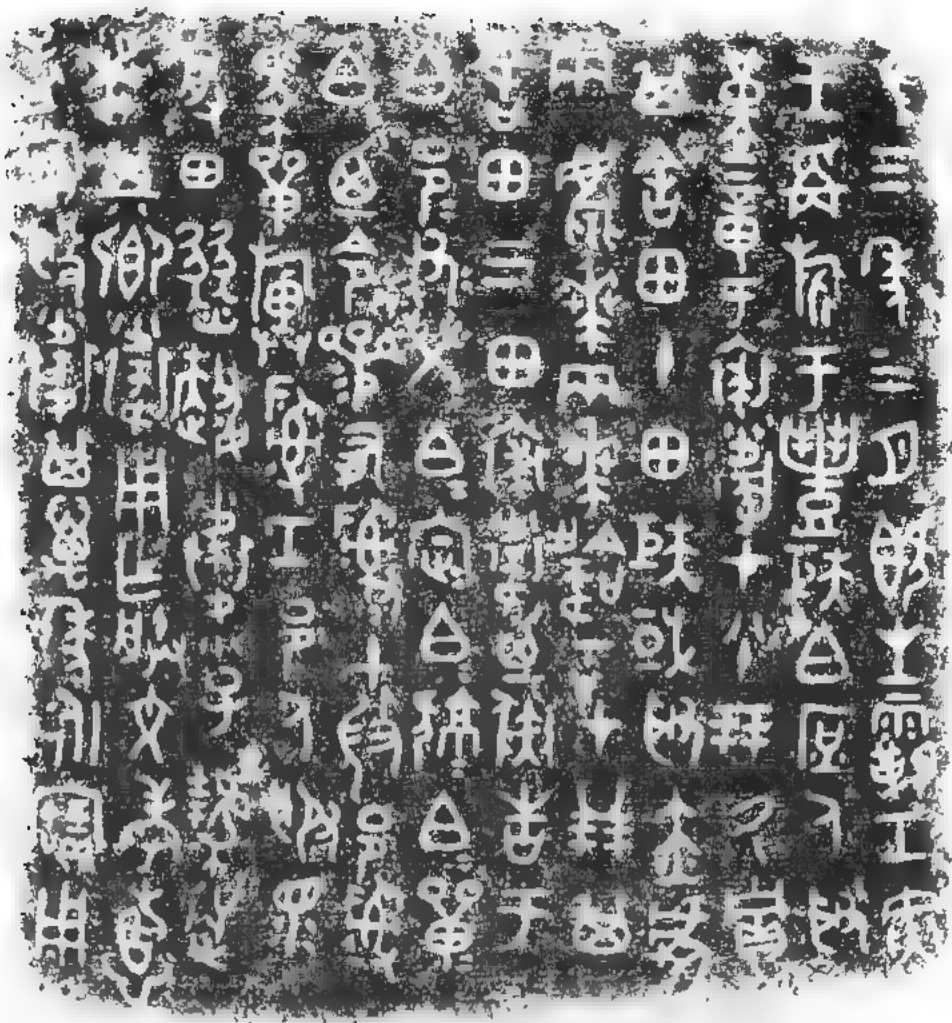 隹三年三月既生霸壬寅
王爯旂于豐矩白庶人取
堇章于裘衛才八十朋厥貯
其舍田十田矩或取赤虎
兩麀𠦪兩𠦪韐一才廿朋其
舍田三田裘衛乃彘告于
白邑父榮白定白白單
白乃令參有司司土微邑司
馬單司工邑人服眔
受田燹趞衛小子逆者
其鄉衛用乍朕文考惠
孟寶般衛其萬年永寶用